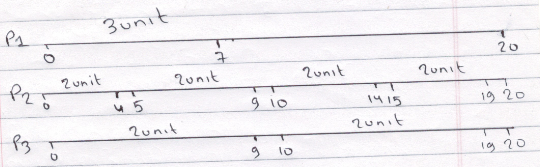 3unit
P1
0 7 20
2unit 2unit 2unit 2unit
P2
0 4 5 9 10 14 15 19 20
2unit 2unit
P3
0 9 10 19 20